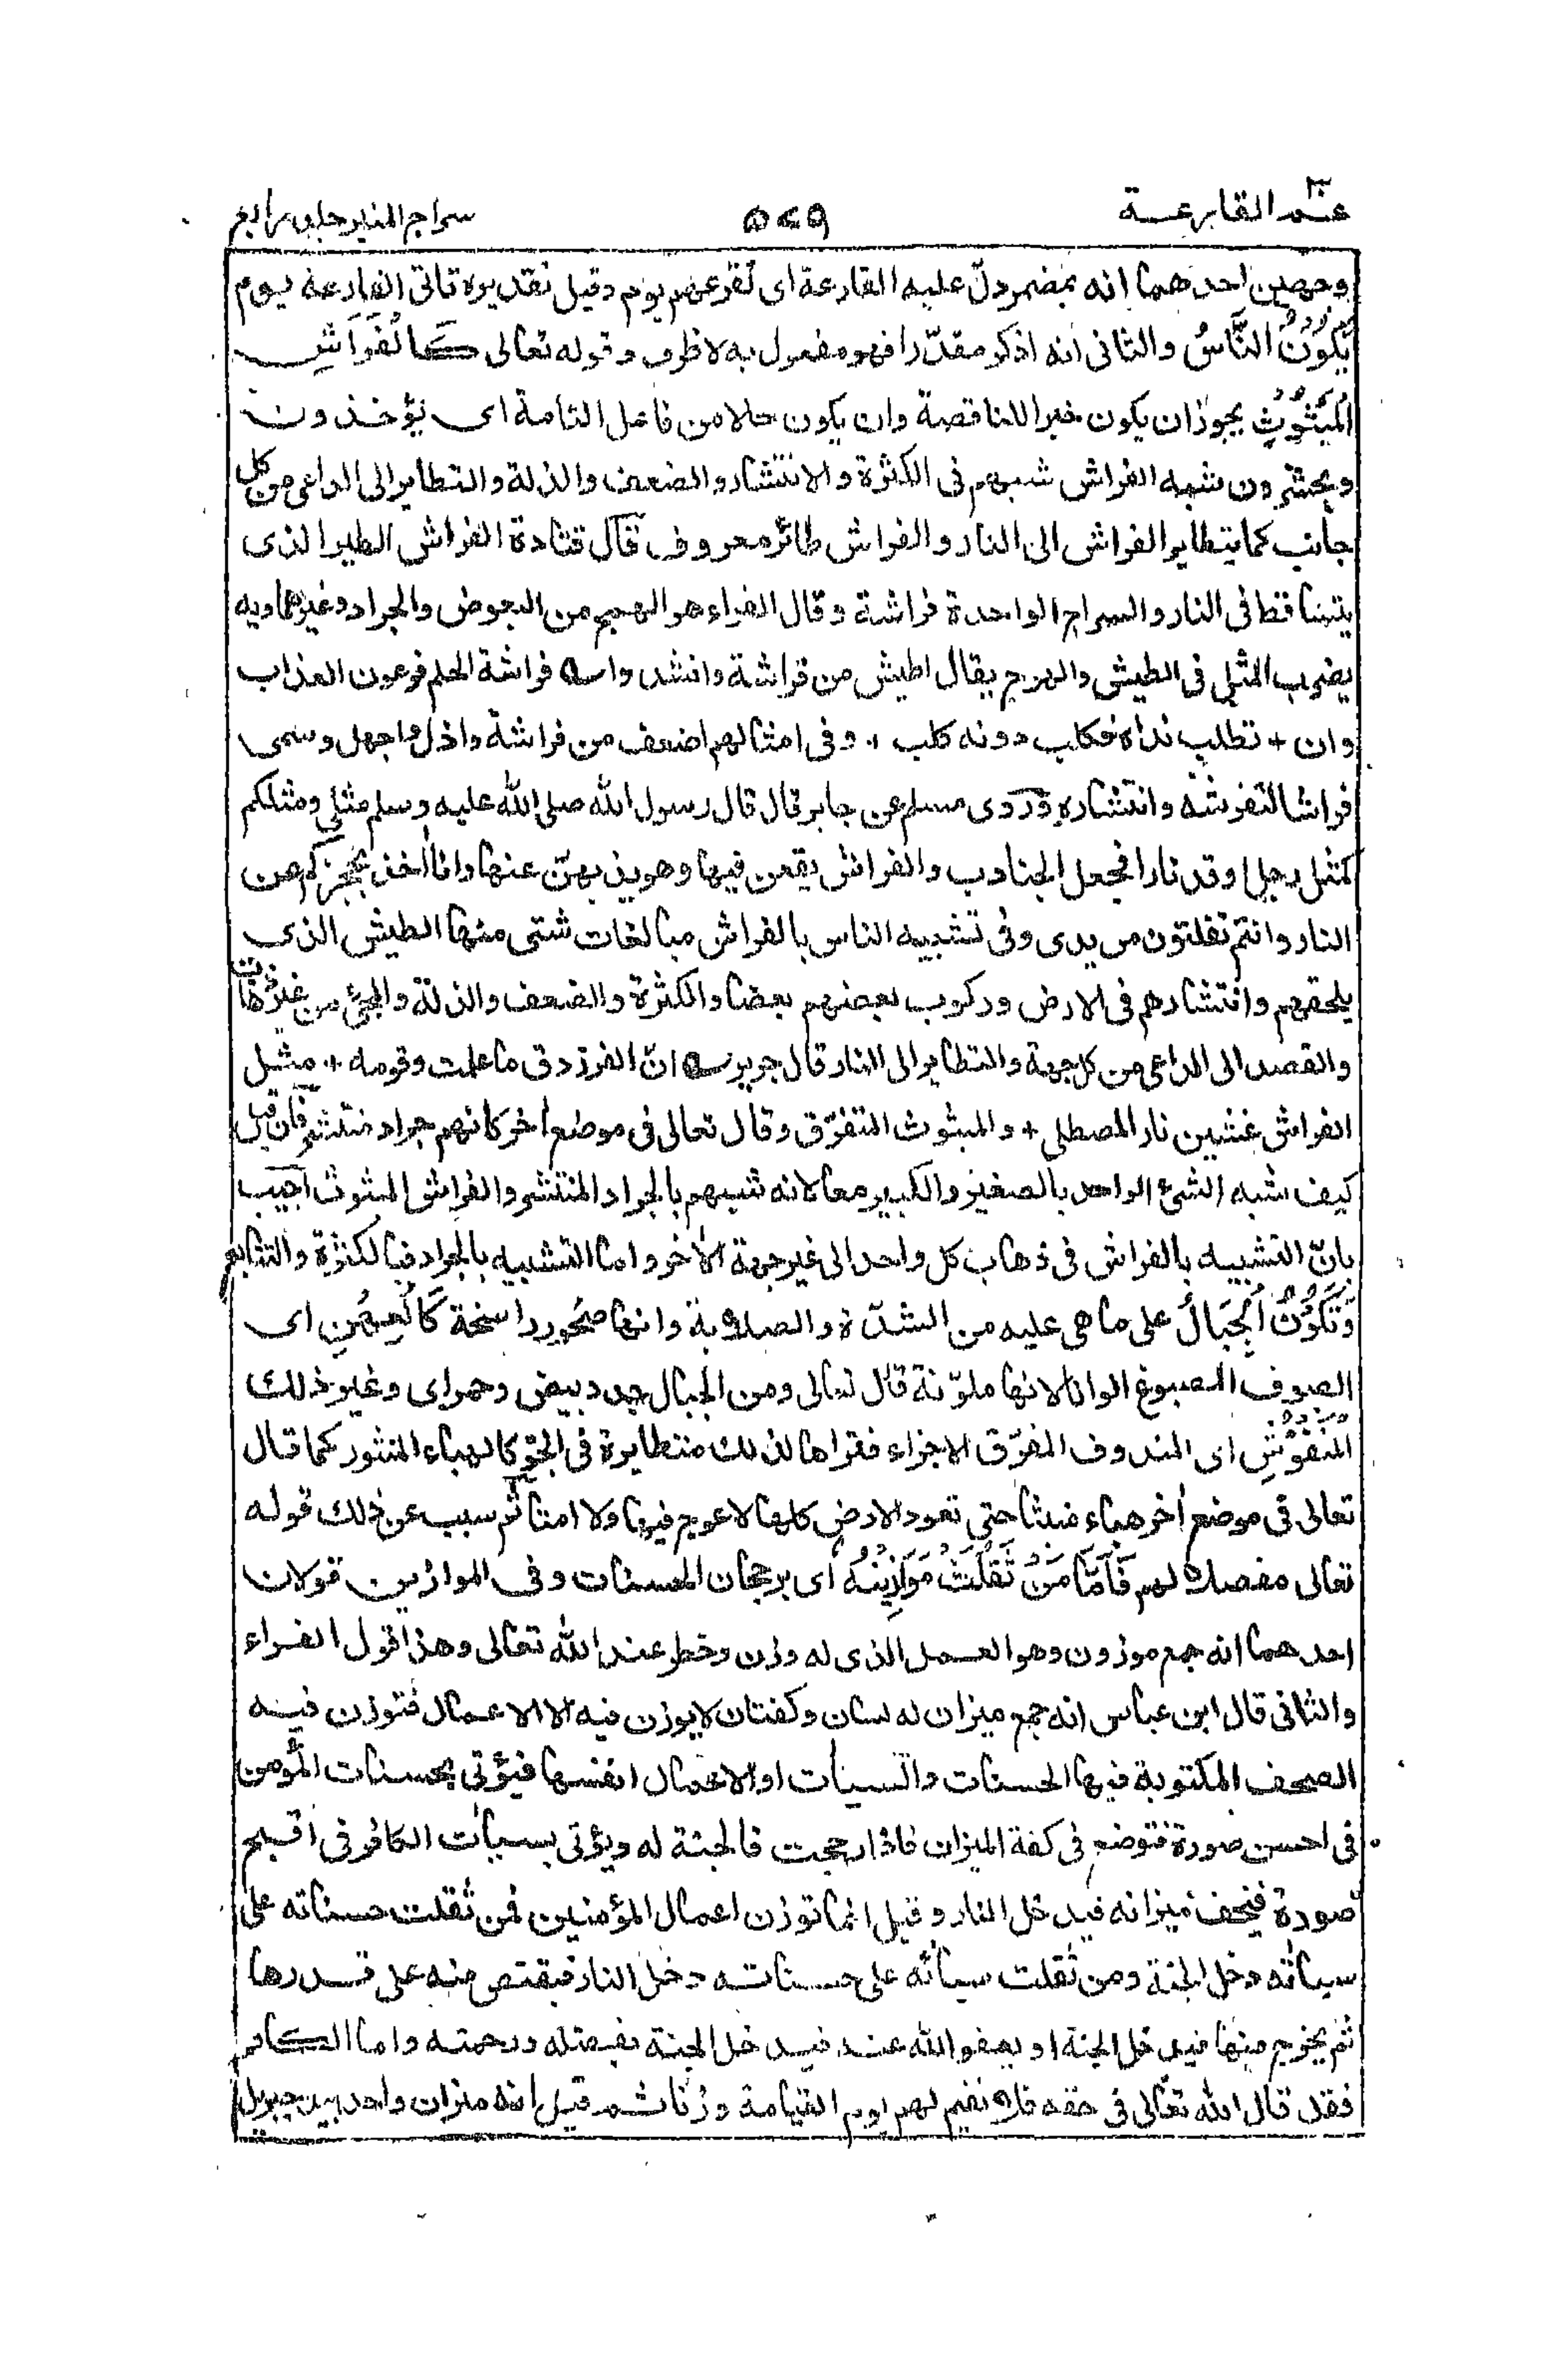 عمّ القارعة ٥٧٩ سراج المنير جلد رابع
وجهين احدهما انه بمضمر دلّ عليه القارعة اى تقرعهم يوم وقيل تقديره تاتى القارعة يوم
يَكُونُ النَّاسُ والثانى انه اذكر مقدّرا فهو مفعول به لا ظرف وقوله تعالى كَالْفَرَاشِ
الْمَبْثُوثِ يجوز ان يكون خبرا للناقصة وان يكون حالا من فاعل التامة اى يؤخذون
ويحشرون شبه الفراش شبههم فى الكثرة والانتشار والضعف والذلة والتطاير الى الداعى من كل
جانب كما يتطاير الفراش الى النار والفراش طائر معروف قال قتادة الفراش الطير الذى
يتساقط فى النار والسراج الواحدة فراشة وقال الفراء هو الهمج من البعوض والجراد وغيرهما وبه
يضرب المثل فى الطيش والهرج يقال اطيش من فراشة وانشدوا فراشة الحلم فرعون العذاب
وان + تطلب نداه فكلب دونه كلب + وفى امثالهم اضعف من فراشة واذل واجهل وسمى
فراشا لتفرشه وانتشاره وروى مسلم عن جابر قال قال رسول الله صلى الله عليه وسلم مثلى ومثلكم
كمثل رجل اوقد نارا فجعل الجنادب والفراش يقعن فيها وهو يذبهنّ عنها وانا اٰخذ بحجزكم عن
النار وانتم تفلتون من يدى وفى تشبيه الناس بالفراش مبالغات شتى منها الطيش الذى
يلحقهم وانتشارهم فى الارض وركوب بعضهم بعضا والكثرة والضعف والذلة والمجئ من غير ذهاب
والقصد الى الداعى من كل جهة والتطاير الى النار قال جرير انّ الفرزدق ما علمت وقومه + مثل
الفراش غشين نار المصطلى + والمبثوث المتفرّق وقال تعالى فى موضع اٰخر كانهم جراد منتشر فان قيل
كيف شبه الشئ الواحد بالصغير والكبير معا لانه شبههم بالجراد المنتشر والفراش المبثوث اجيب
بانّ التشبيه بالفراش فى ذهاب كل واحد الى غير جهة الاٰخر واما التشبيه بالجراد فبالكثرة والتتابع
وَتَكُوْنُ الْجِبَالُ على ما هى عليه من الشدّة والصلابة وانها صخور راسخة كَالْعِهْنِ اى
الصوف المصبوغ الوانا لانها ملوّنة قال تعالى ومن الجبال جدد بيض وحمر اى وغير ذلك
الْمَنْفُوْشِ اى المندوف المفرّق الاجزاء فتراها لذلك متطايرة فى الجوّ كالهباء المنثور كما قال
تعالى فى موضع اٰخر هباء منبثا حتى تعود الارض كلها لا عوج فيها ولا امتا ثم سبب عن ذلك قوله
تعالى مفصلا لهم فَاَمَّا مَنْ ثَقُلَتْ مَوَازِيْنُهُ اى برجحان الحسنات وفى الموازين قولان
احدهما انه جمع موزون وهو العمل الذى له وزن وخطر عند الله تعالى وهذا قول الفراء
والثانى قال ابن عباس انه جمع ميزان له لسان وكفتان لا يوزن فيه الا الاعمال فتوزن فيه
الصحف المكتوبة فيها الحسنات والسيأت او الاعمال انفسها فيؤتى بحسنات المؤمن
فى احسن صورة فتوضع فى كفة الميزان فاذا رجحت فالجنة له ويؤتى بسيأت الكافر فى اقبح
صورة فيخف ميزانه فيدخل النار وقيل انما توزن اعمال المؤمنين فمن ثقلت حسناته على
سيأته دخل الجنة ومن ثقلت سيأته على حسناته دخل النار فيقتص منه على قدرها
ثم يخرج منها فيدخل الجنة او يعفو الله عنه فيدخل الجنة بفضله ورحمته واما الكافر
فقد قال الله تعالى فى حقه فلا نقيم لهم يوم القيامة وزنا ثم قيل انه ميزان واحد بيد جبريل